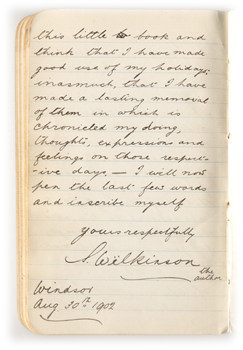 this little book and
think that I have made
good use of my holidays
inasmuch, that I have
made a lasting memorial
of them in which is
chronicled my doing,
thoughts, expressions and
feelings on those respect-
-ive days, — I will now
pen the last few words
and inscribe myself
yours respectfully
S. Wilkinson
the author
Windsor
Aug 30th 1902